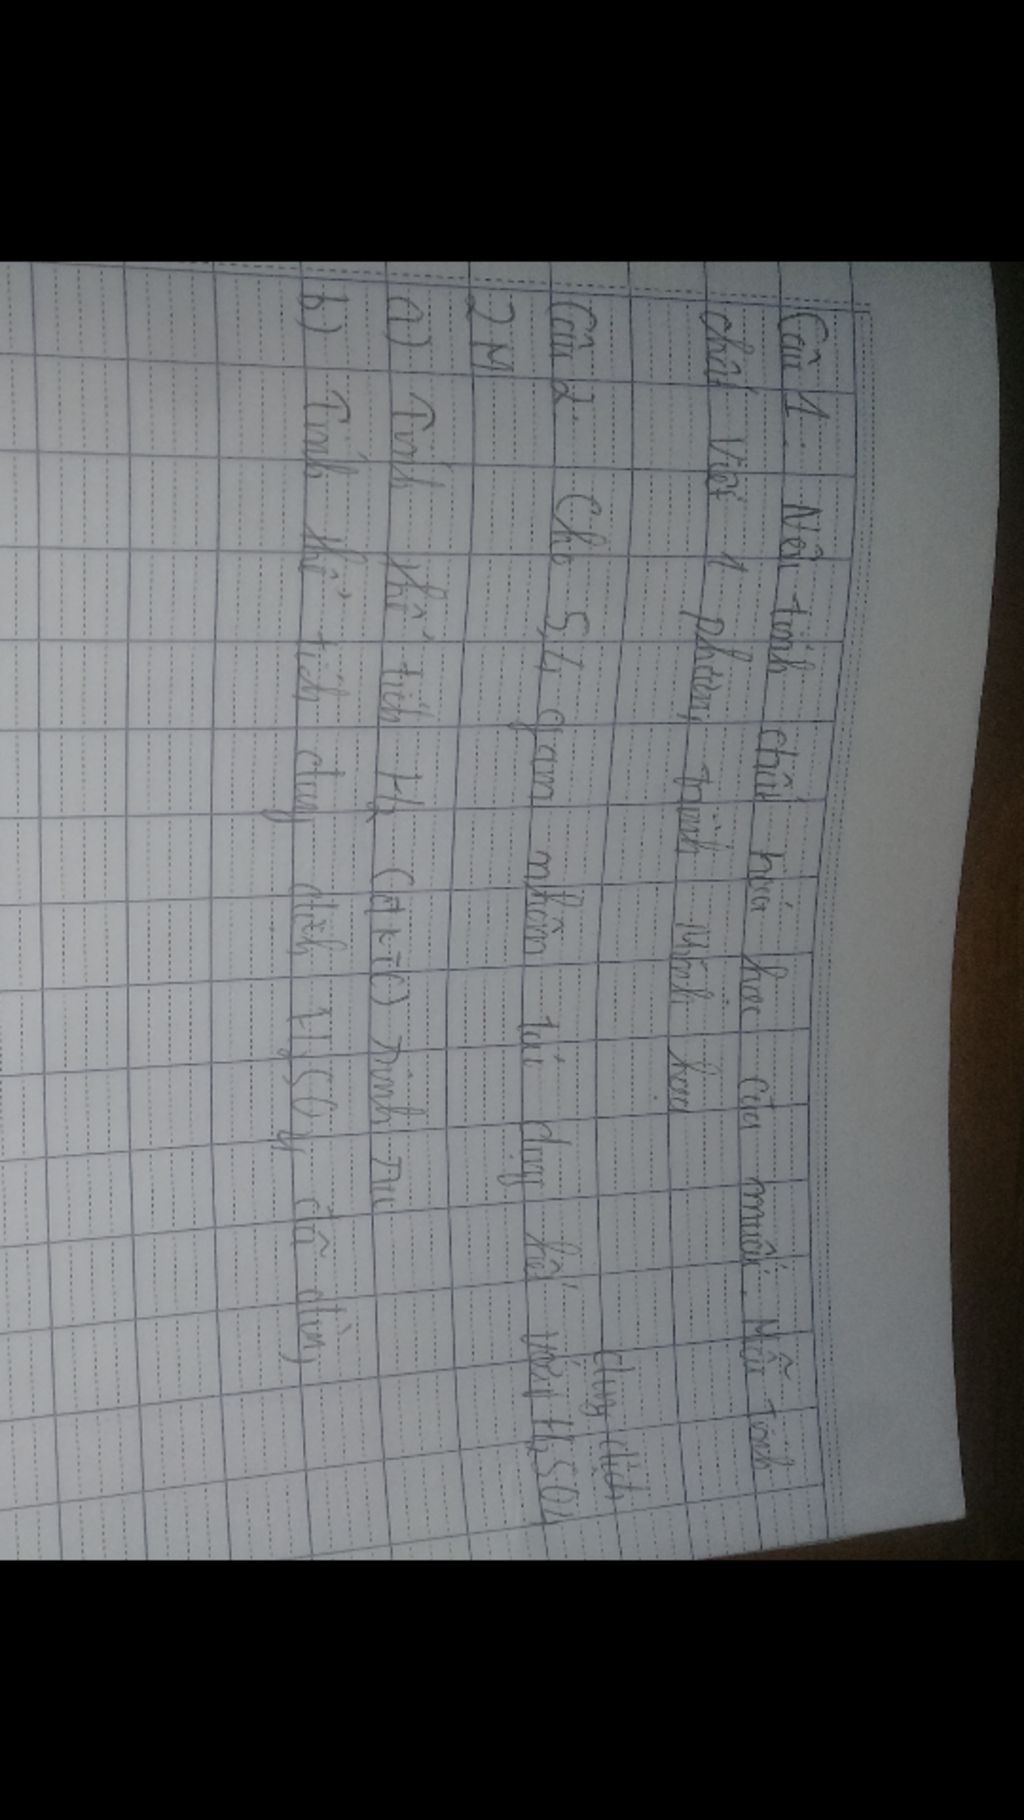 Câu 1. Nêu tính chất hóa học của muối. Mỗi tính
chất viết 1 phương trình Minh họa
dung dịch
Câu 2. Cho 5,4 gam nhôm tác dụng hết với H₂SO₄
2M
a) Tính thể tích H₂ (đktc) sinh ra
b) Tính thể tích dung dịch H₂SO₄ đã dùng